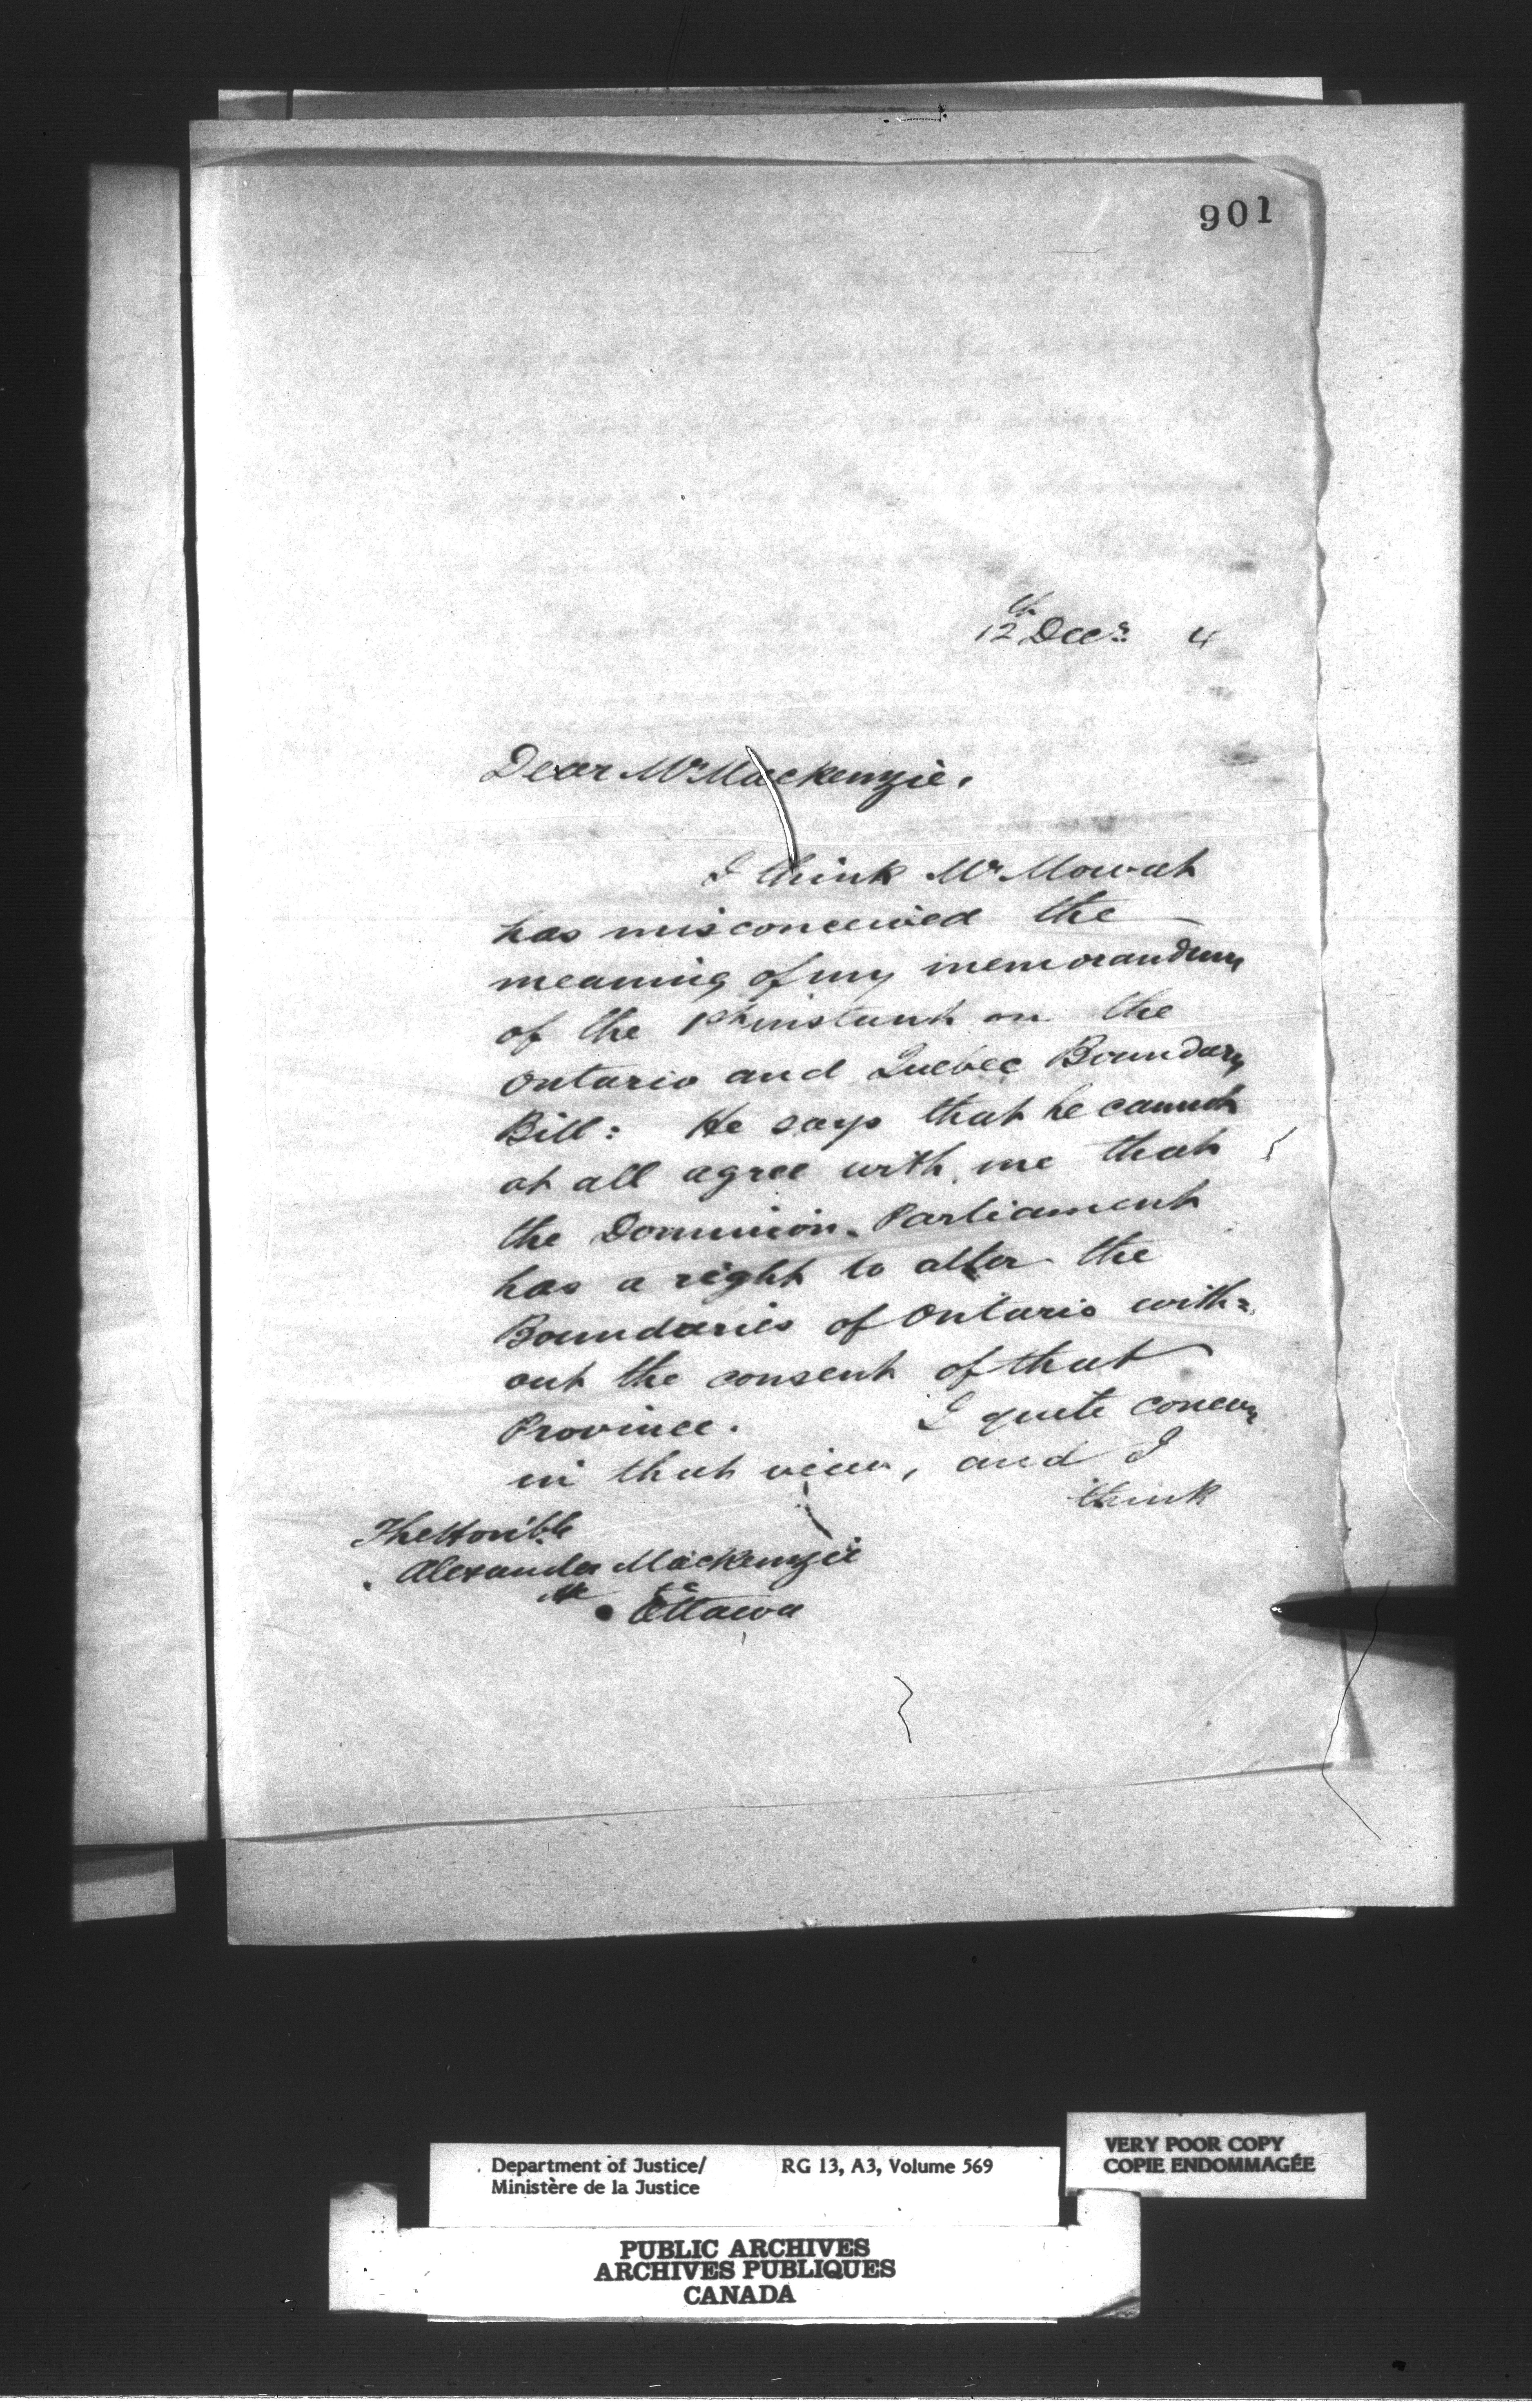 901
12th Decr. 4
Dear Mr Mackenzie,
I think Mr Mowat
has misconceived the
meaning of my memorandum
of the 1st instant on the
Ontario and Quebec Boundary
Bill: He says that he cannot
at all agree with me that
the Dominion Parliament
has a right to alter the
Boundaries of Ontario with=
out the consent of that
Province. I quite concur
in that view, and I
think
The Honble
Alexander Mackenzie
Ottawa
Department of Justice/ RG 13, A3, Volume 569
Ministère de la Justice
VERY POOR COPY
COPIE ENDOMMAGÉE
PUBLIC ARCHIVES
ARCHIVES PUBLIQUES
CANADA